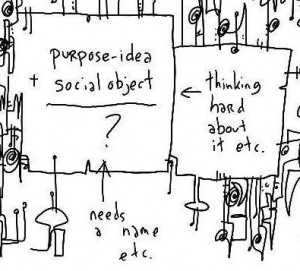 purpose-idea
+ social object
?
← thinking
hard
about
it etc.
needs
a name
etc.